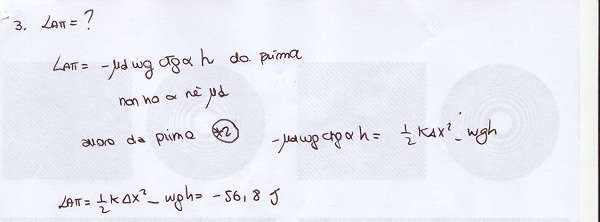 3. LATT = ?
LATT = -μd mg ctgα h da prima
non ho α né μd
avevo da prima *2 -μd mg ctgα h = 1/2 KΔX² - mgh
LATT = 1/2 KΔX² - mgh = -56,8 J